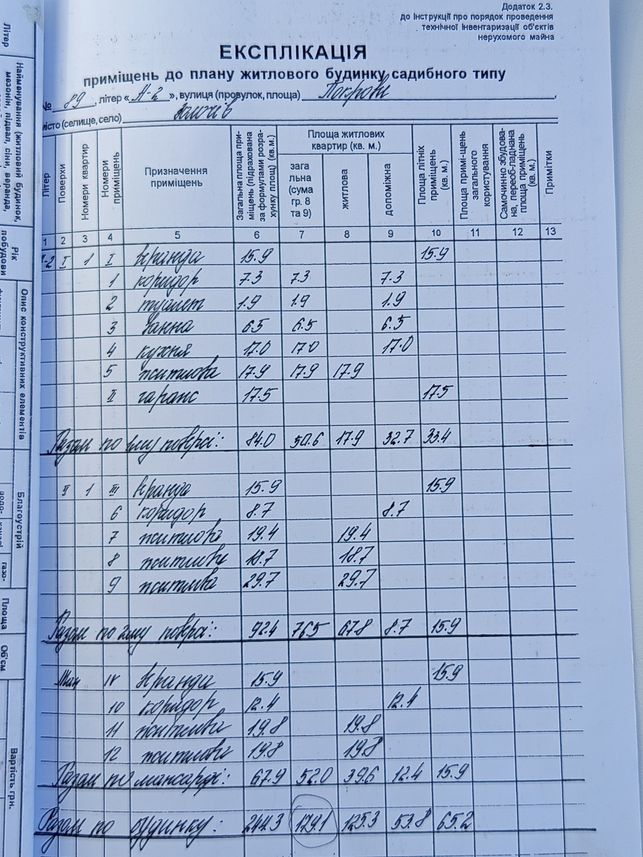 Додаток 2.3.
до Інструкції про порядок проведення
технічної інвентаризації об'єктів
нерухомого майна
ЕКСПЛІКАЦІЯ
приміщень до плану житлового будинку садибного типу
№ 89, літер « А-2 », вулиця (провулок, площа) Покрови
місто (селище, село)
Літер
Поверхи
Номери квартир
Номери приміщень
Призначення приміщень
Загальна площа приміщень (підрахована за формулами розрахунку площ) (кв.м.)
Площа житлових квартир (кв. м.)
загальна (сума гр. 8 та 9)
житлова
допоміжна
Площа літніх приміщень (кв. м)
Площа примі-щень загального користування
Самочинно збудована, перебо-ладнана площа приміщень (кв. м)
Примітки
1 2 3 4 5 6 7 8 9 10 11 12 13
А-2 I 1 I веранда 15.9 15.9
1 коридор 7.3 7.3 7.3
2 туалет 1.9 1.9 1.9
3 ванна 6.5 6.5 6.5
4 кухня 17.0 17.0 17.0
5 житлова 17.9 17.9 17.9
II гараж 17.5 17.5
Разом по 1му поверсі: 84.0 50.6 17.9 32.7 33.4
II 1 III веранда 15.9 15.9
6 коридор 8.7 8.7
7 житлова 19.4 19.4
8 житлова 18.7 18.7
9 житлова 29.7 29.7
Разом по 2му поверсі: 92.4 76.5 67.8 8.7 15.9
IV веранда 15.9 15.9
10 коридор 12.4 12.4
11 житлова 19.8 19.8
12 житлова 19.8 19.8
Разом по мансарді: 67.9 52.0 39.6 12.4 15.9
Разом по будинку: 244.3 179.1 125.3 53.8 65.2
Літер
Найменування (житловий будинок, мезонін, підвал, сіни, веранда,
Рік побудови
Опис конструктивних елементів
Благоустрій
газо-
Площа
Об'єм
Вартість грн.